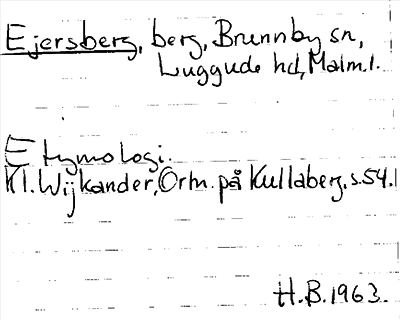 Ejersberg, berg, Brunnby sn,
Luggude hd, Malm.l.
Etymologi.
Kl. Wijkander, Ortn. på Kullaberg, s.54.
H.B.1963.